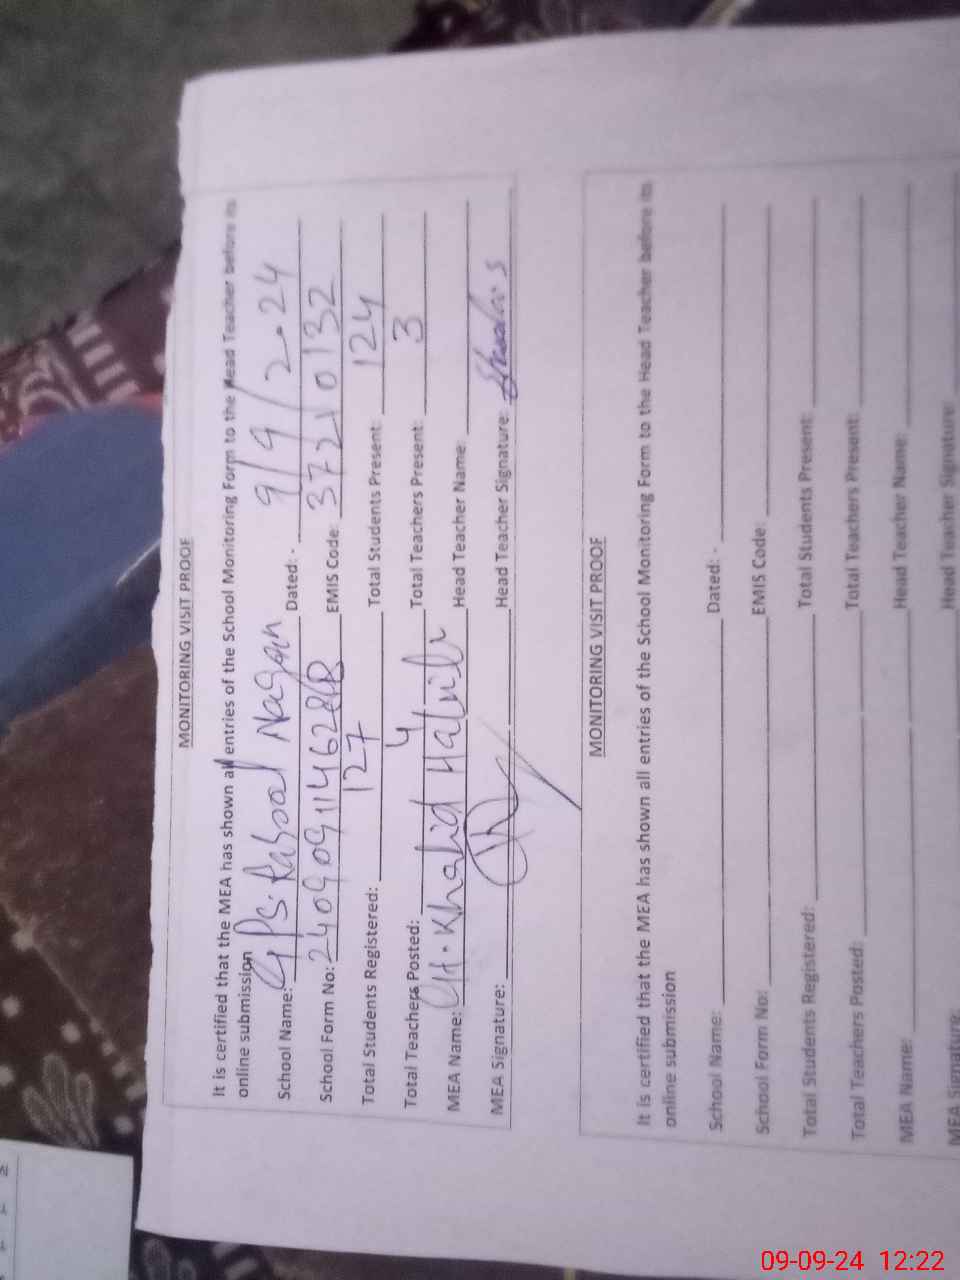 MONITORING VISIT PROOF
It is certified that the MEA has shown all entries of the School Monitoring Form to the Head Teacher before its
online submission
School Name: GPS. Rasool Nagar Dated: - 9/9/2024
School Form No: 240909114628 EMIS Code: 37210132
Total Students Registered: 127 Total Students Present: 124
Total Teachers Posted: 4 Total Teachers Present: 3
MEA Name: Khalid Head Teacher Name:
MEA Signature: Head Teacher Signature:
MONITORING VISIT PROOF
It is certified that the MEA has shown all entries of the School Monitoring Form to the Head Teacher before its
online submission
School Name: Dated: -
School Form No: EMIS Code:
Total Students Registered: Total Students Present:
Total Teachers Posted: Total Teachers Present:
MEA Name: Head Teacher Name:
MEA Signature: Head Teacher Signature:
09-09-24 12:22